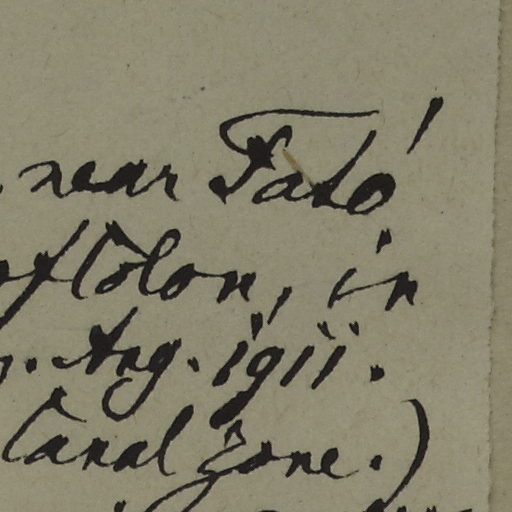 near Fató
of Colon, in
. Aug. 1911.
Canal Zone.)